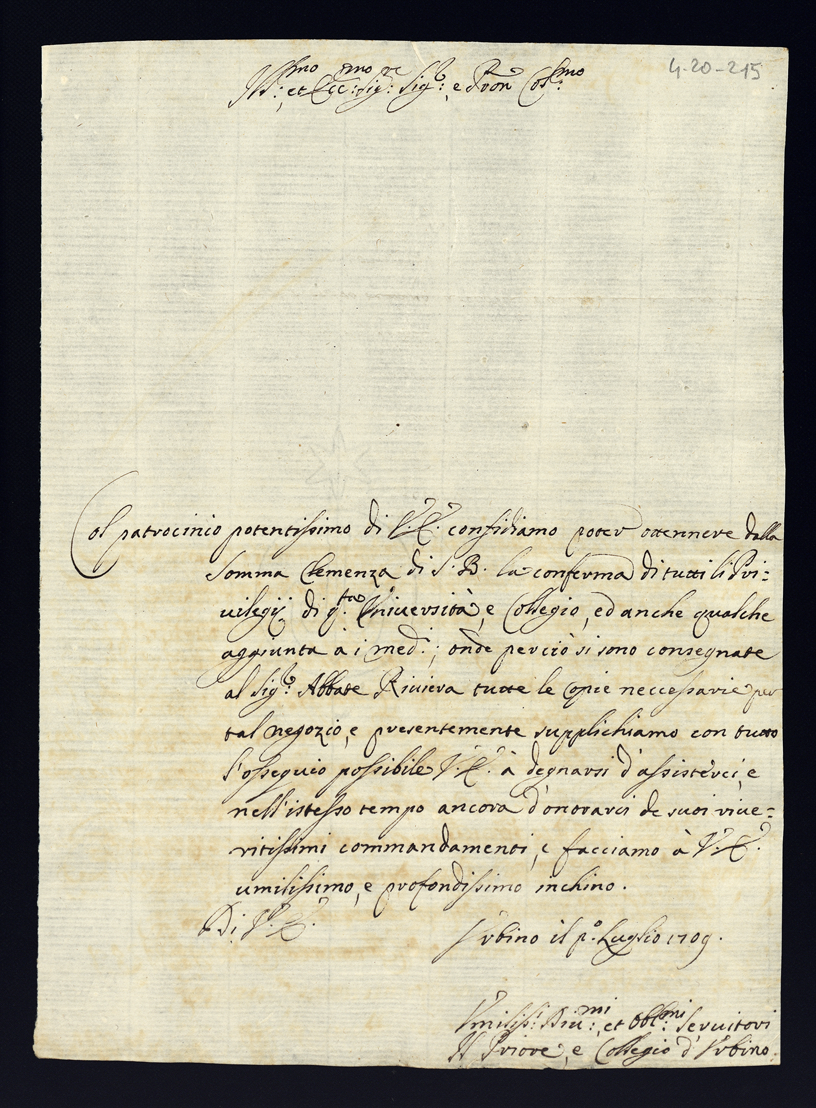 4-20-215
Ill:mo et Ecc:mo Sig:re Sig:r e Pron Col:mo
Col patrocinio potentissimo di V.E. confidiamo poter ottennere dalla
somma Clemenza di S. B. la conferma di tutti li Pri=
vilegij di q:ta Università, e Collegio, ed anche qualche
aggiunta à i med:i; onde perciò si sono consegnate
al Sig:r Abbate Riviera tutte le Copie neccessarie per
tal negozio, e presentemente supplichiamo con tutto
l'ossequio possibile V.E. à degnarsi d'assisterci, e
nell'istesso tempo ancora d'onorarci de suoi rive=
ritissimi commandamenti, e facciamo à V.E.
umilissimo, e profondissimo inchino.
Di V.E.
Urbino il p:o Luglio 1709.
Umiliss:i Div:mi, et Obbl:mi Servitori
Il Priore, e Collegio d'Urbino